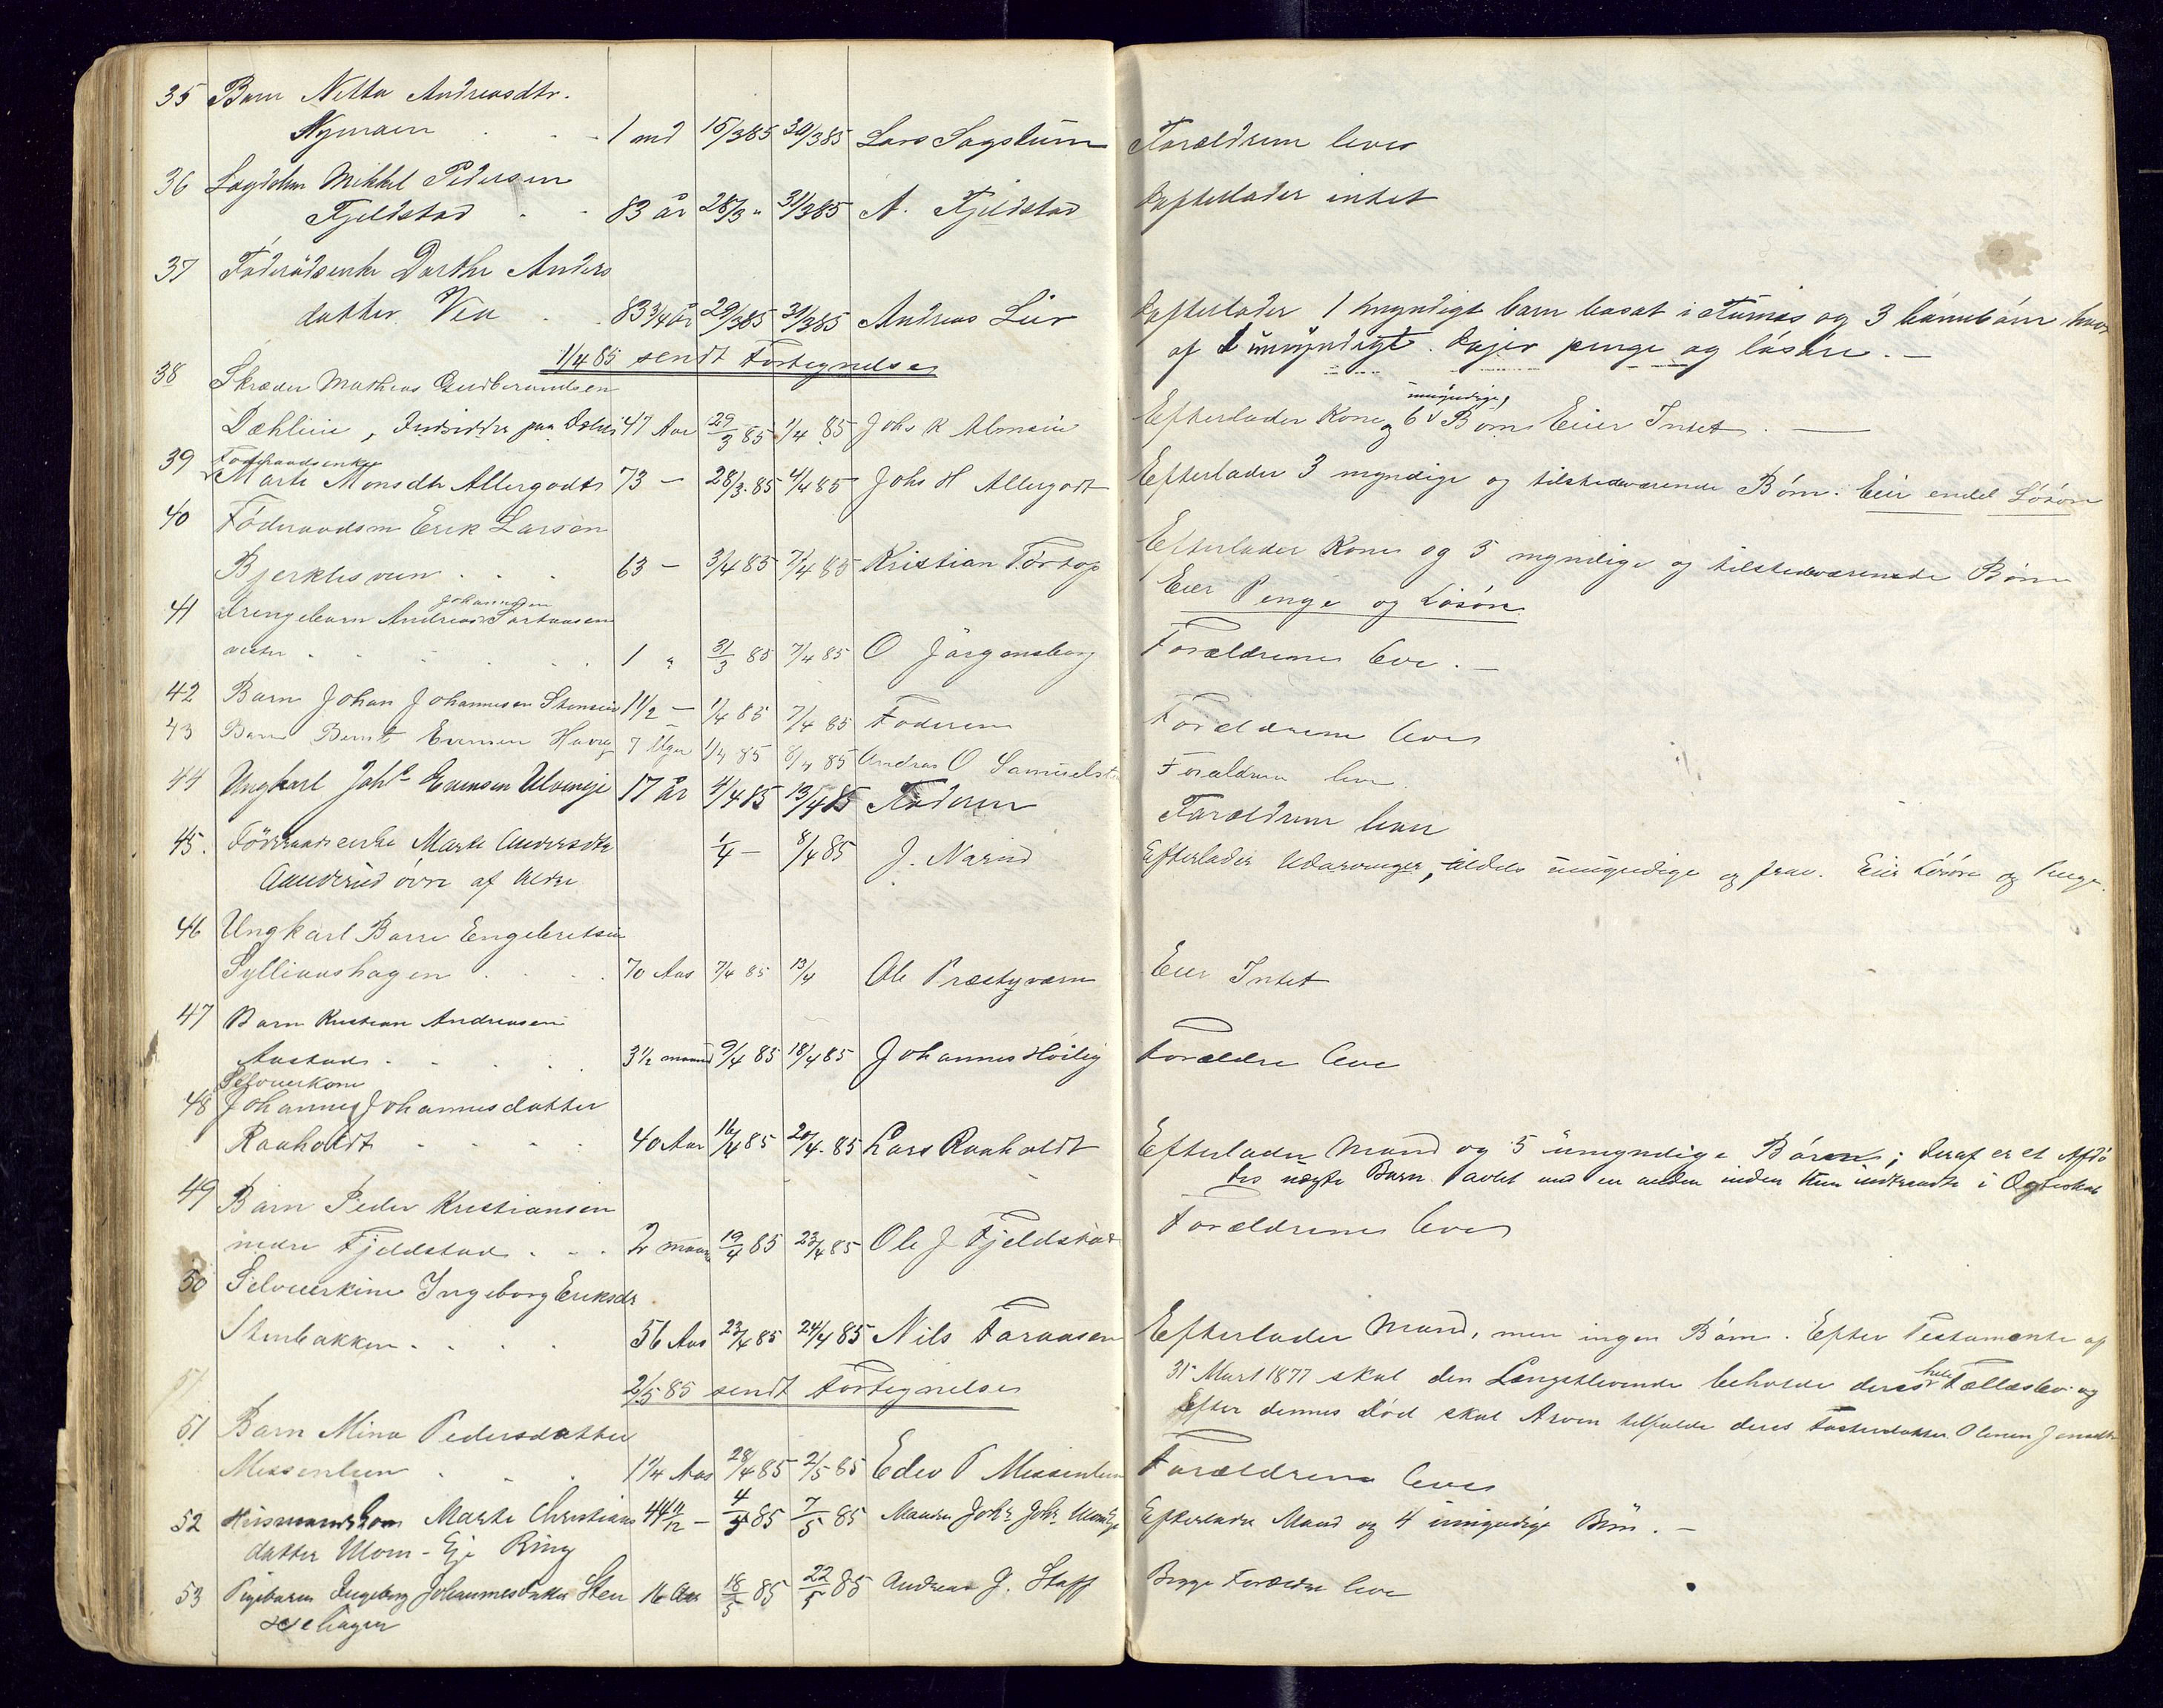 35 Barn Netta Andreasdtr.
Nymoen . . 1 md 15/3 85 30/3 85 Lars Sagstuen Forældrene lever
36 Lægdslem Mikkel Pedersen
Fjeldstad . . 83 år 28/3 " 31/3 85 A. Fjeldstad Efterlader intet
37 Föderådsenke Dorthe Anders
datter Vea . . 83 3/4 år 29/3 85 31/3 85 Andreas Lier Efterlader 1 myndigt barn bosat i og 3 hvor
af 1 umyndigt. Ejer penge og løsøre. —
1/4 85 sendt Fortegnelse
38 Skræder Mathias Gudbrandsen
Dæhlien, Inderster paa 47 Aar 29/3 85 1/4 85 Johs K Almein Efterlader Kone og 6 umyndige, Børn Eier Intet. —
39 Föderaadsenke
Marte Monsdtr Allergodt 73 — 28/3. 85 4/4 85 Johs H Allergodt Efterlader 3 myndige og tilstedeværende Børn. Eier endel Løsøre
40 Föderaadsm Erik Larsen
Bjerklisveen . . . 63 — 3/4 85 7/4 85 Kristian Tortop Efterlader Kone og 5 myndige og tilstedeværende Børn
Eier Penge og Løsøre.
41 Drengebarn Andreas Johannesen
. . . . . 1 " 31/3 85 7/4 85 O Jörgensberg Forældrene leve. —
42 Barn Johan Johannesen Stensein 1 1/2 — 1/4 85 7/4 85 Faderen Forældrene lever
43 Barn Bernt Evensen 7 Uger 1/4 85 8/4 85 Andreas O Forældrene leve
44 Ungkarl Johs Evensen Ulveneje 17 år 4/4 85 13/4 85 Faderen Forældrene lever
45. Föderaadsenke Marte Andersdtr 1/4 — 8/4 85 J. Narud Efterlader Udarvinger, tildels umyndige og frav. Eier Løsøre og Penge.
Amdrud övre af Alder
46 Ungkarl Borre Engebretsen
Sylliaashagen . . . . 70 Aar 7/4 85 13/4 Ole Eier Intet
47 Barn Kristian Andreasen
Aastad . . . . 3 1/2 maaned 9/4 85 18/4 85 Johannes Høilig Forældre leve
48 Selveierkone
Johanne Johannesdatter
Raaholdt . . . . 40 Aar 16/4 85 20/4. 85 Lars Raaholdt Efterlader Mand og 5 umyndige Børn; deraf er et Afdø
des uægte Barn avlet med en anden inden Hun indtraadte i Ægteskab
49 Barn Peder Kristiansen
nedre Fjeldstad . . . 2 maan 19/4 85 23/4 85 Ole J Fjeldstad Forældrene lever
50 Selveierkone Ingeborg Eriksdr
Stenbakken . . . . 56 Aar 23/4 85 24/4 85 Nils Faraasen Efterlader Mand, men ingen Børn. Efter Testamente af
31 Mart 1877 skal den Længstlevende beholde deres hele Fællesbo og
Efter dennes Død skal Arven tilfalde deres Fosterdatter Olence Jensdtr
2/5 85 sendt Fortegnelse
51 Barn Mina Pedersdatter
Messenlien . . . 1 1/4 Aar 28/4 85 2/5 85 Edev P Messenlien Forældrene lever
52 Husmandskone Marte Christians 44 11/12 — 4/5 85 7/5 85 Manden Johs Johs Efterlader Mand og 4 umyndige Børn. —
datter Moen - Eje Ring
53 Pigebarn Ingeborg Johannesdatter Sten 16 Aar 18/5 85 22/5 85 Andreas J. Staff Begge Forældre leve
hagen